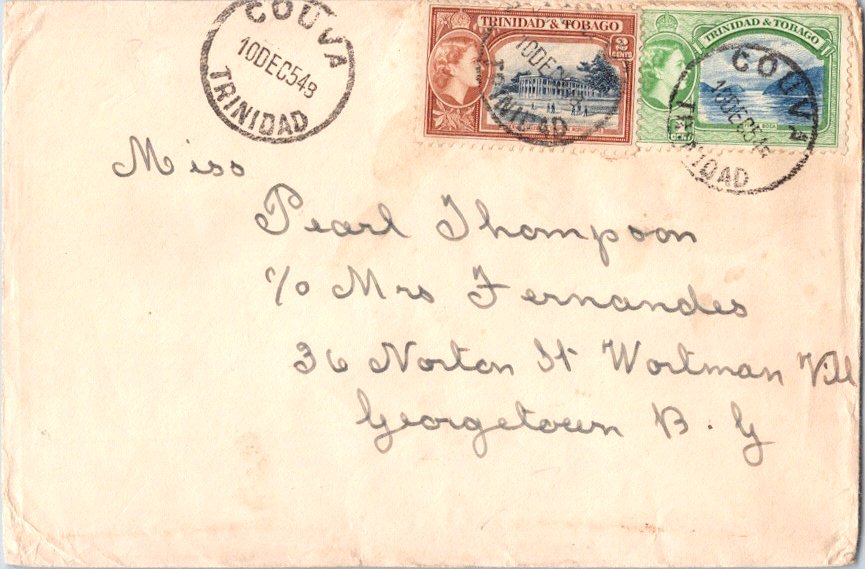 COUVA
10DEC54B
TRINIDAD
TRINIDAD & TOBAGO
2
CENTS
TRINIDAD & TOBAGO
COUVA
10DEC54B
TRINIDAD
Miss
Pearl Thompson
c/o Mrs Fernandes
36 Norton St Wortman Vill
Georgetown B. G